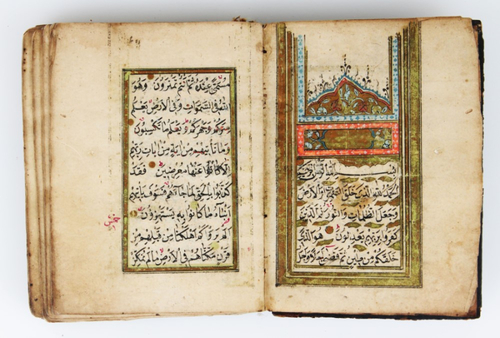 بسم الله الرحمن الرحيم
الحمد لله الذي خلق السموات والارض
وجعل الظلمات والنور ثم الذين
كفروا بربهم يعدلون هو الذي
خلقكم من طين ثم قضى اجلا واجل
مسمى عنده ثم انتم تمترون وهو
الله في السموات وفي الارض يعلم
سركم وجهركم ويعلم ما تكسبون
وما تأتيهم من اية من ايات ربهم
الا كانوا عنها معرضين فقد
كذبوا بالحق لما جاءهم فسوف يأتيهم
انبؤا ما كانوا به يستهزؤن الم
يروا كم اهلكنا من قبلهم من
قرن مكناهم في الارض ما لم نمكن